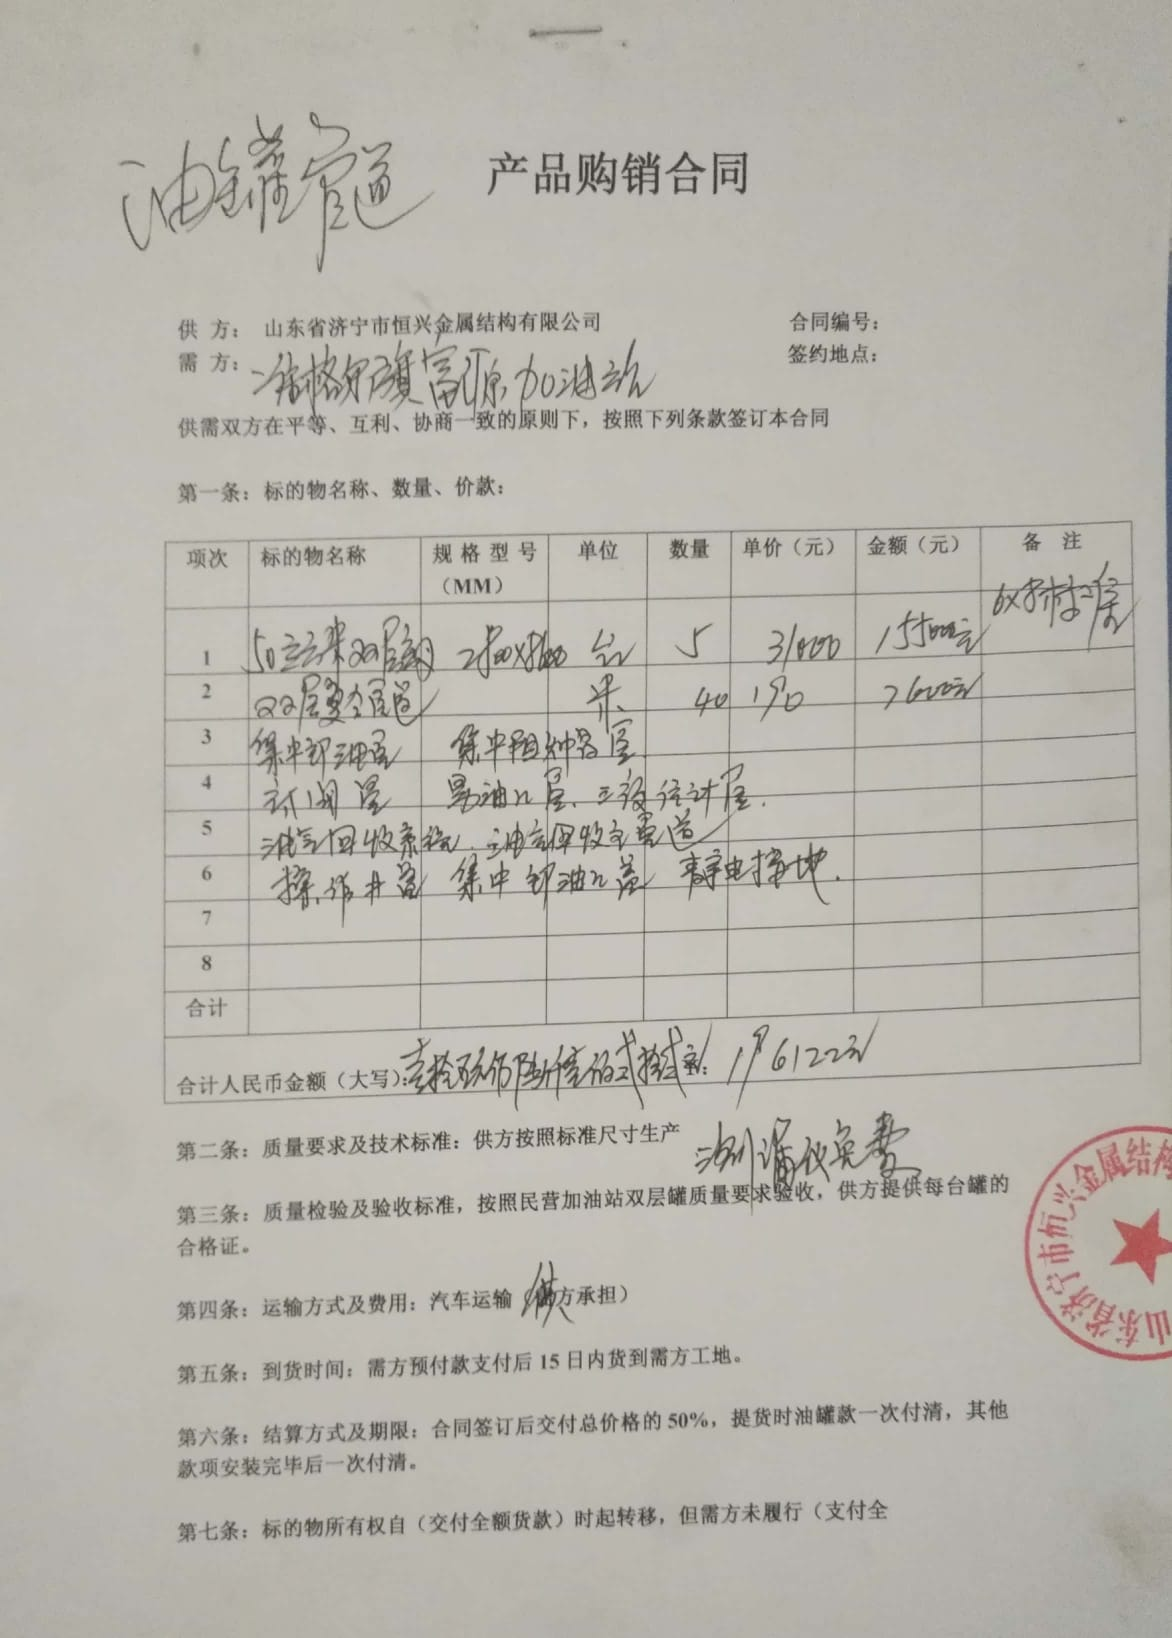 油罐管道
产品购销合同
供 方： 山东省济宁市恒兴金属结构有限公司 合同编号：
需 方： 准格尔旗富源加油站 签约地点：
供需双方在平等、互利、协商一致的原则下，按照下列条款签订本合同
第一条：标的物名称、数量、价款：
项次 标的物名称 规格型号（MM） 单位 数量 单价（元） 金额（元） 备 注
1 50立方米双层 台 5 31000 155000元
2 双层复合管道 米 40 190 7600元
3 集中卸油管 集中
4
5 油气回收系统
6 操作井盖 集中卸油 静电接地.
7
8
合计
合计人民币金额（大写）： 196122元
第二条：质量要求及技术标准：供方按照标准尺寸生产 免费
第三条：质量检验及验收标准，按照民营加油站双层罐质量要求验收，供方提供每台罐的
合格证。
第四条：运输方式及费用：汽车运输 供方承担）
第五条：到货时间：需方预付款支付后 15 日内货到需方工地。
第六条：结算方式及期限：合同签订后交付总价格的 50%，提货时油罐款一次付清，其他
款项安装完毕后一次付清。
第七条：标的物所有权自（交付全额货款）时起转移，但需方未履行（支付全
山东省济宁市恒兴金属结构